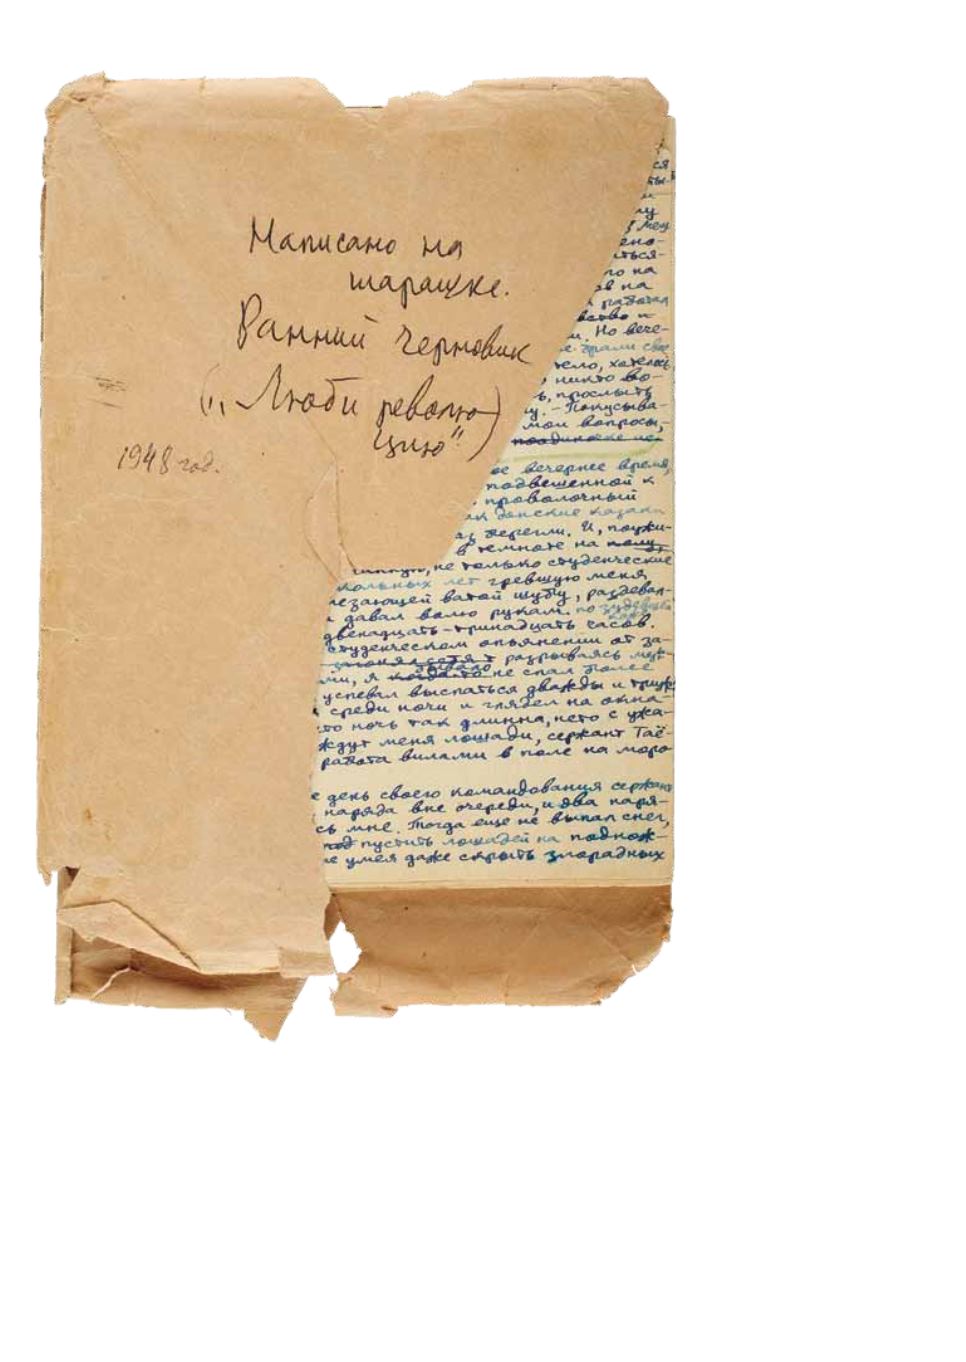 Написано на
шарашке.
Ранний черновик
(„Люби револю-
цию")
1948 год.
ся
ты-
з меш
ено-
иться-
ло на
ов на
работал
вство и
и. Но вече-
тело, хотелось
, никто во-
ь, прослыть
у. – Покусыва-
мои вопросы,
поединоке не
ое вечернее время,
подвешенной к
. проволочный
ак донские казаки
аз перегли. И, поужи-
в темноте на полу,
не только студенческие
кольных лет гревшую меня
лезающей ватой шубу, раздевал-
и давал волю рукам. по
двенадцать-тринадцать часов.
студенческом опьянении от за-
разрываясь меж-
ми, я когда-то не спал более
бывало
успевал выспаться дважды и трижды
среди ночи и глядел на окна-
что ночь так длинна, нето с ужа-
ждут меня лошади, сержант Таё-
работа вилами в поле на моро-
е день своего командования сержант
наряда вне очереди, и два наря-
сь мне. Тогда еще не выпал снег,
под пустить лошадей на поднож-
не умея даже скрыть злорадных